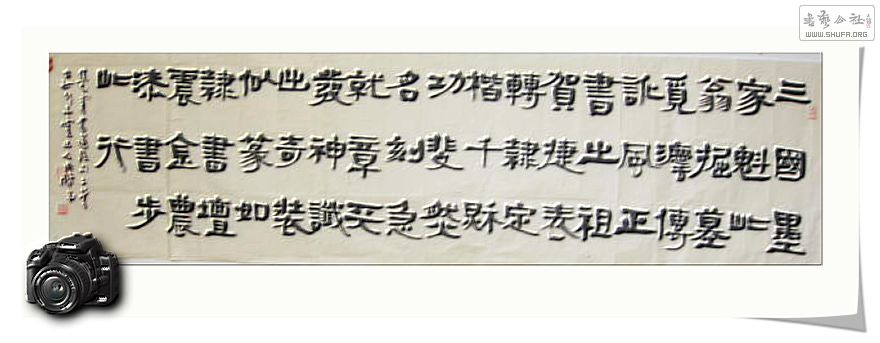 書藝公社
WWW.SHUFA.ORG
三國墨
家魁此
翁掘墓
覓傳
訛風正
書之祖
賀捷表
轉隸定
楷千秋
功斐然
名刻急
就章天
發神讖
出奇裝
似篆如
隸書壇
震金農
漆書步
此行